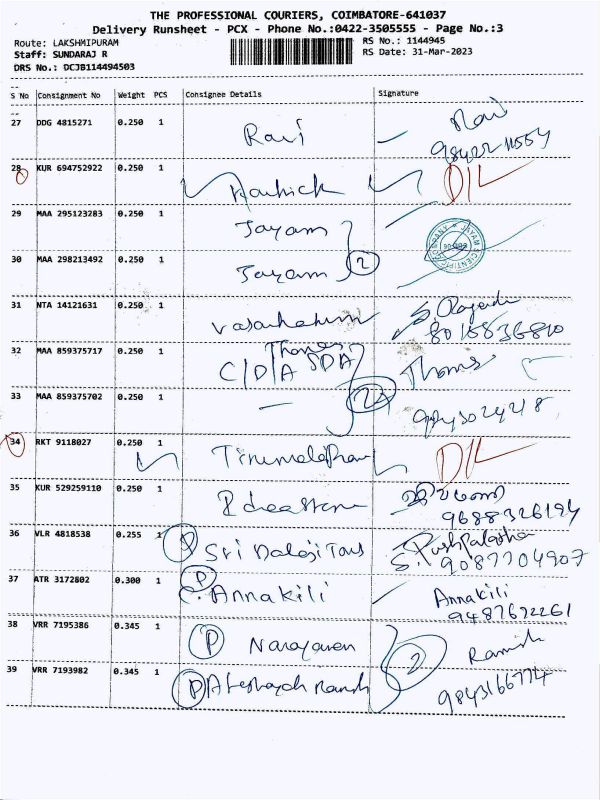 THE PROFESSIONAL COURIERS, COIMBATORE-641037
Delivery Runsheet - PCX - Phone No.:0422-3505555 - Page No.:3
Route: LAKSHMIPURAM RS No.: 1144945
Staff: SUNDARAJ R RS Date: 31-Mar-2023
DRS No.: DCJB114494503
S No Consignment No Weight PCS Consignee Details Signature
27 DDG 4815271 0.250 1 Ravi Ravi
28 KUR 694752922 0.250 1 D/L
29 MAA 295123283 0.250 1 Jayam
30 MAA 298213492 0.250 1 Jayam 2
31 NTA 14121631 0.250 1
8015836810
32 MAA 859375717 0.250 1 Thomas Thomas
C/D/A SDA
33 MAA 859375702 0.250 1 — 2
34 RKT 9118027 0.250 1 D/L
35 KUR 529259110 0.250 1
9688326194
36 VLR 4818538 0.255 1 P Sri Balaji Tours
9087704907
37 ATR 3172802 0.300 1 P C. Annakili Annakili
9487622261
38 VRR 7195386 0.345 1 P Narayanan 2 Ramesh
39 VRR 7193982 0.345 1 P 9843166774